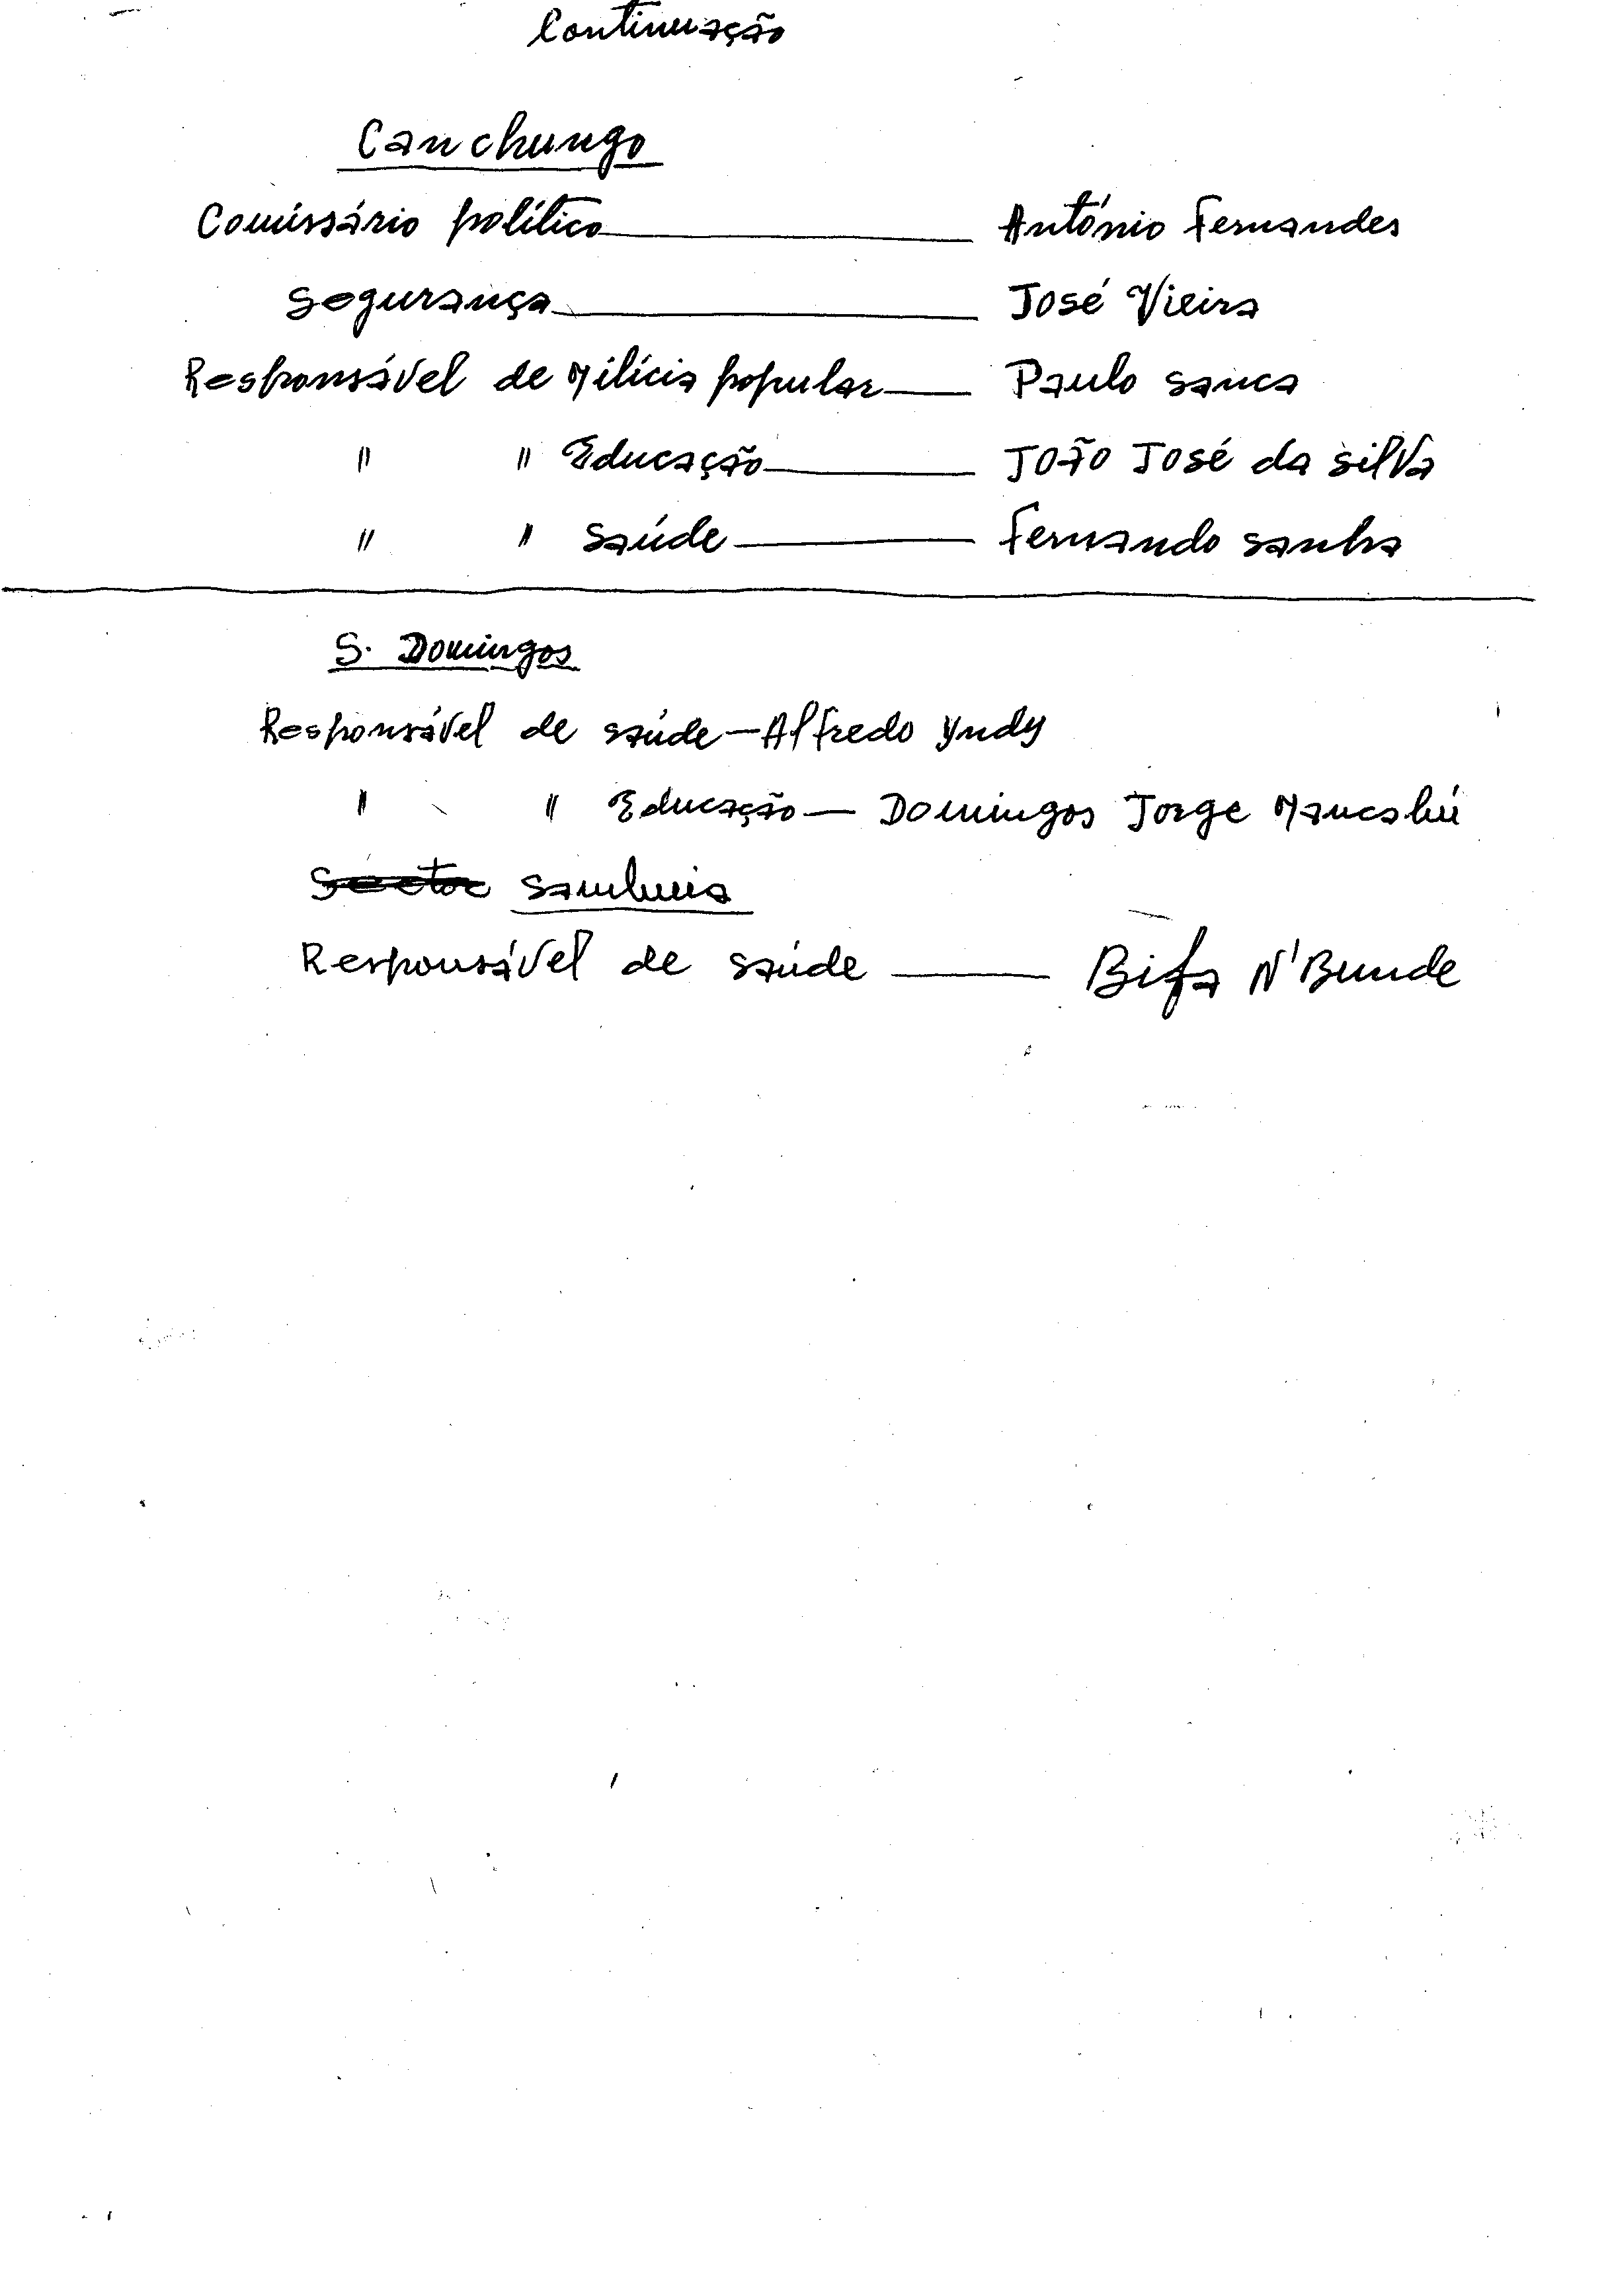 Continuação
Canchungo
Comissário político — António Fernandes
Segurança — José Vieira
Responsável de Milícia popular — Paulo Sanca
" " Educação — João José da Silva
" " Saúde — Fernando Sanha
S. Domingos
Responsável de saúde — Alfredo Yndy
" " Educação — Domingos Jorge
Sector
Responsável de saúde — Bifa N'Bunde